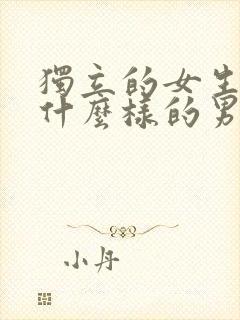 獨立的女生
什麼樣的男
小丹